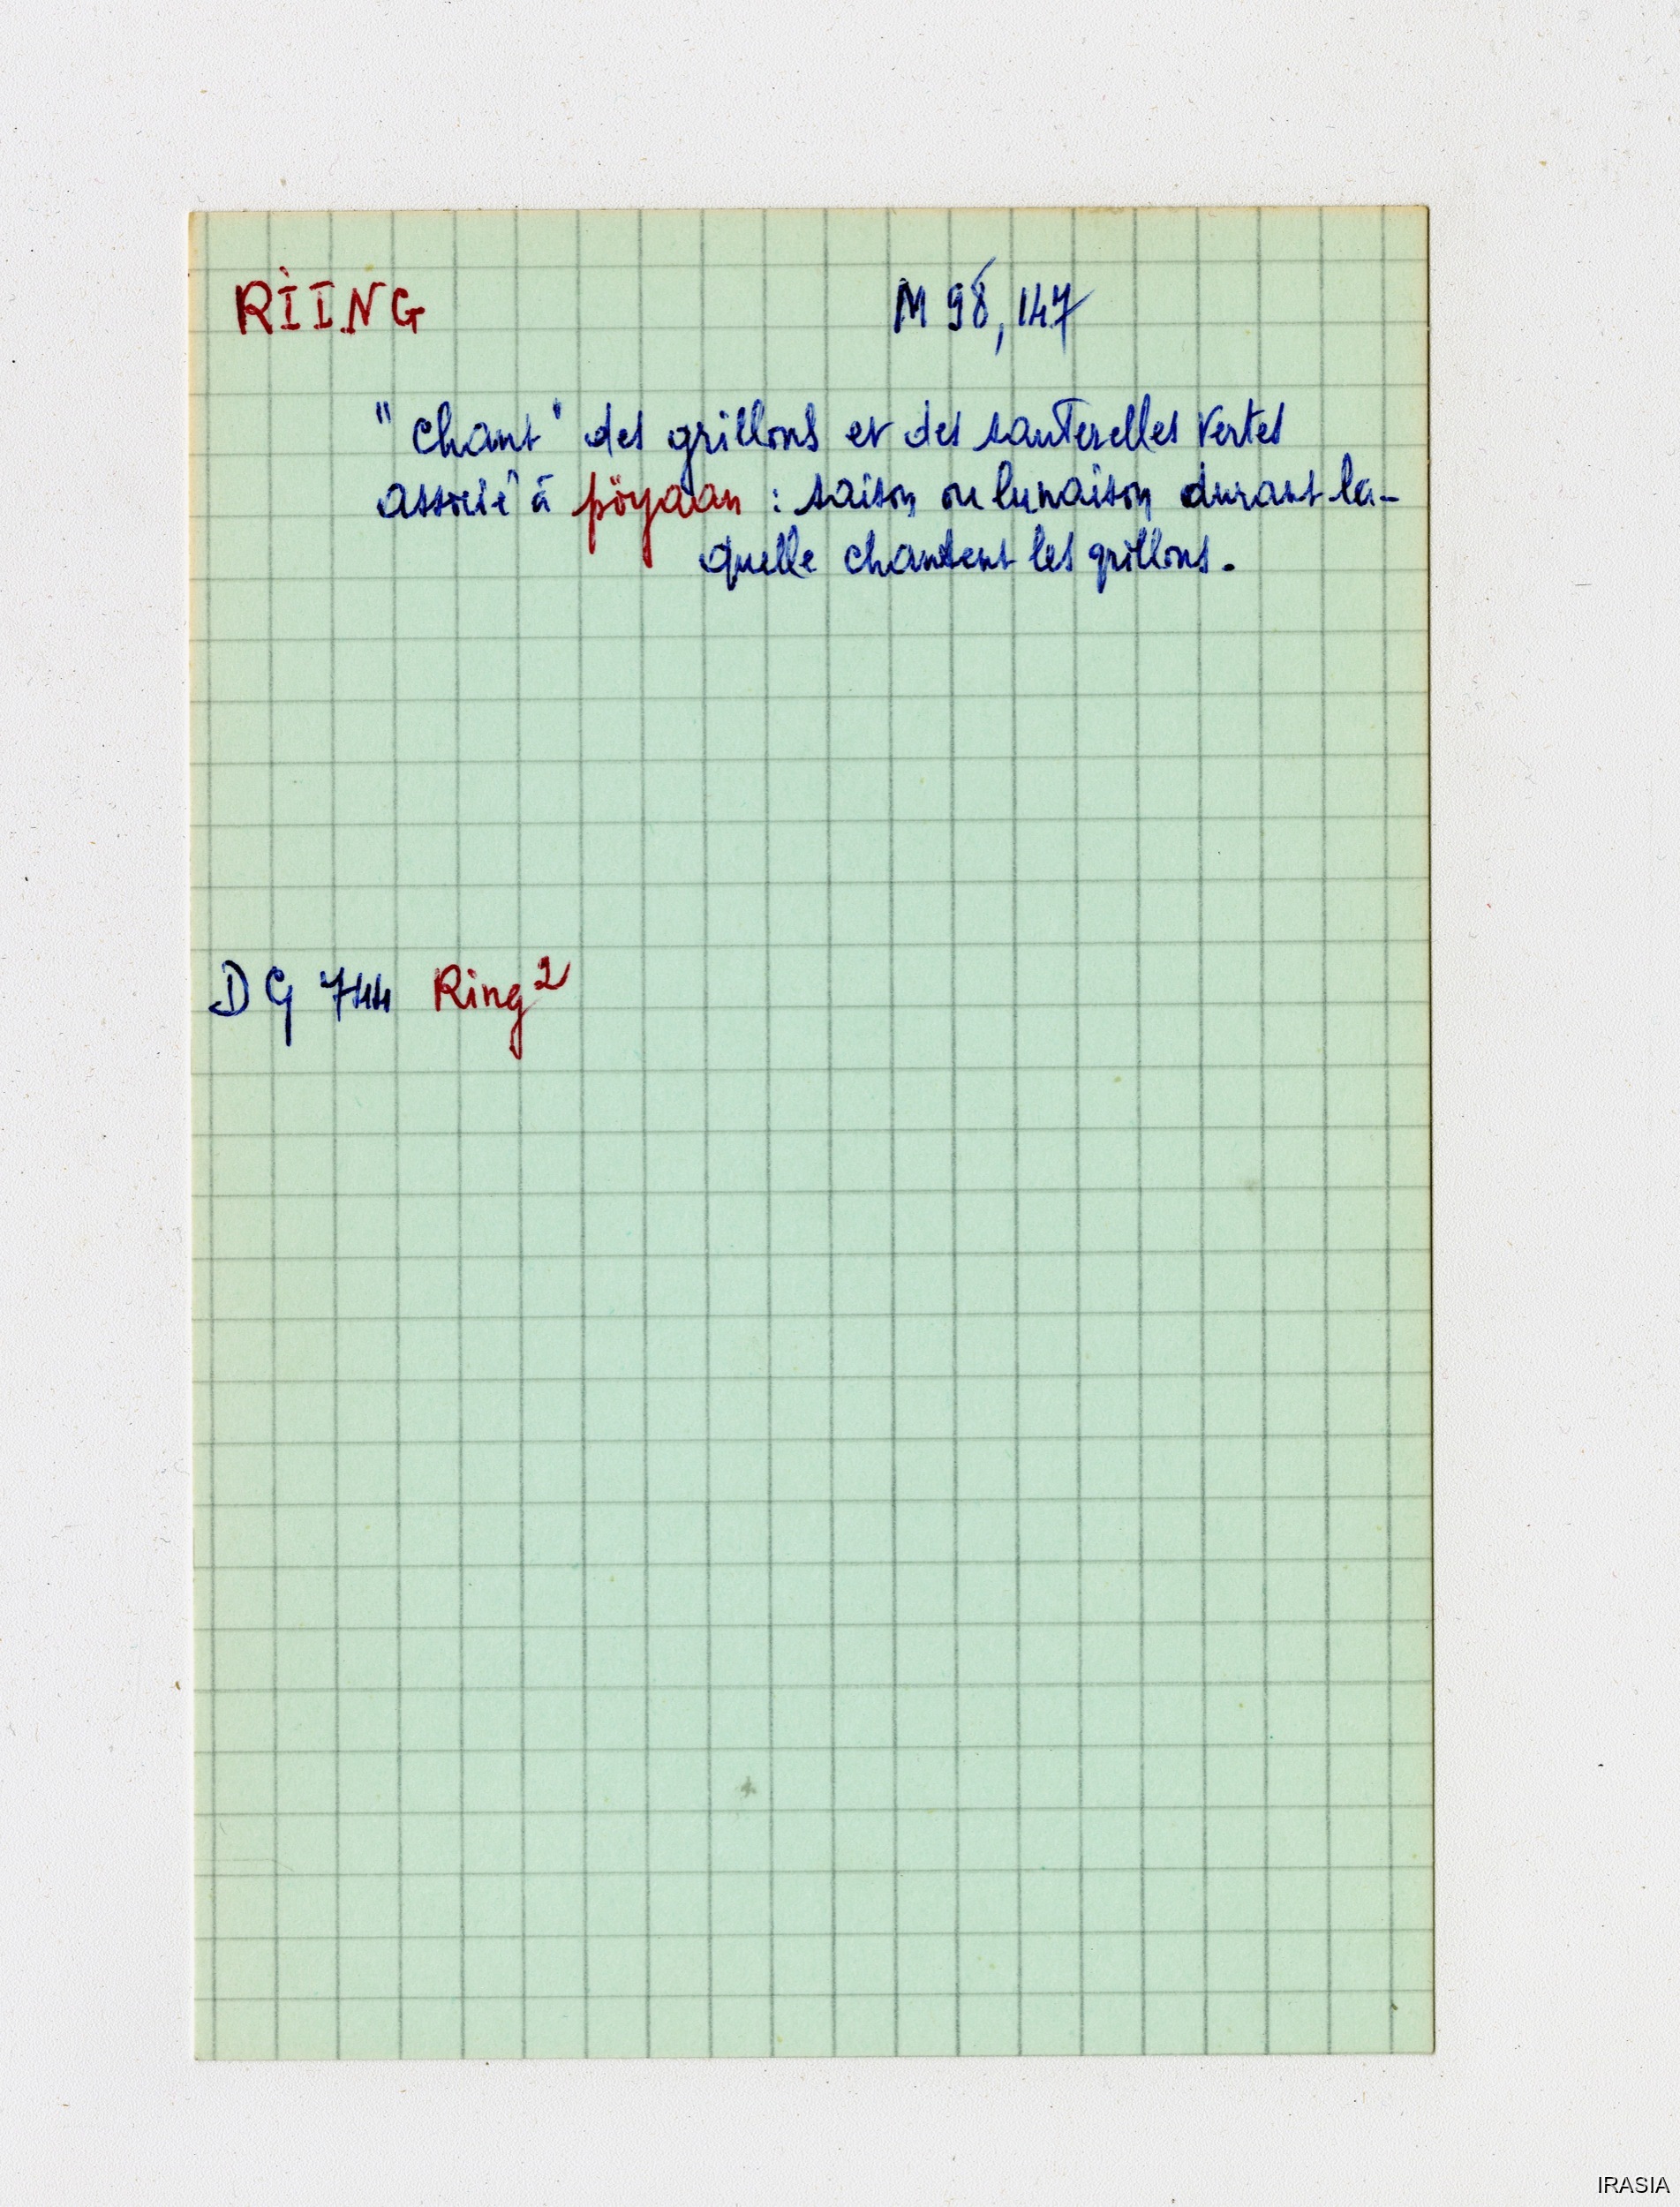 RÌING M 98, 147
"chant" des grillons et des sauterelles vertes
associé à pöyaan : saison ou lunaison durant la-
quelle chantent les grillons.
DG 744 Ring²
IRASIA